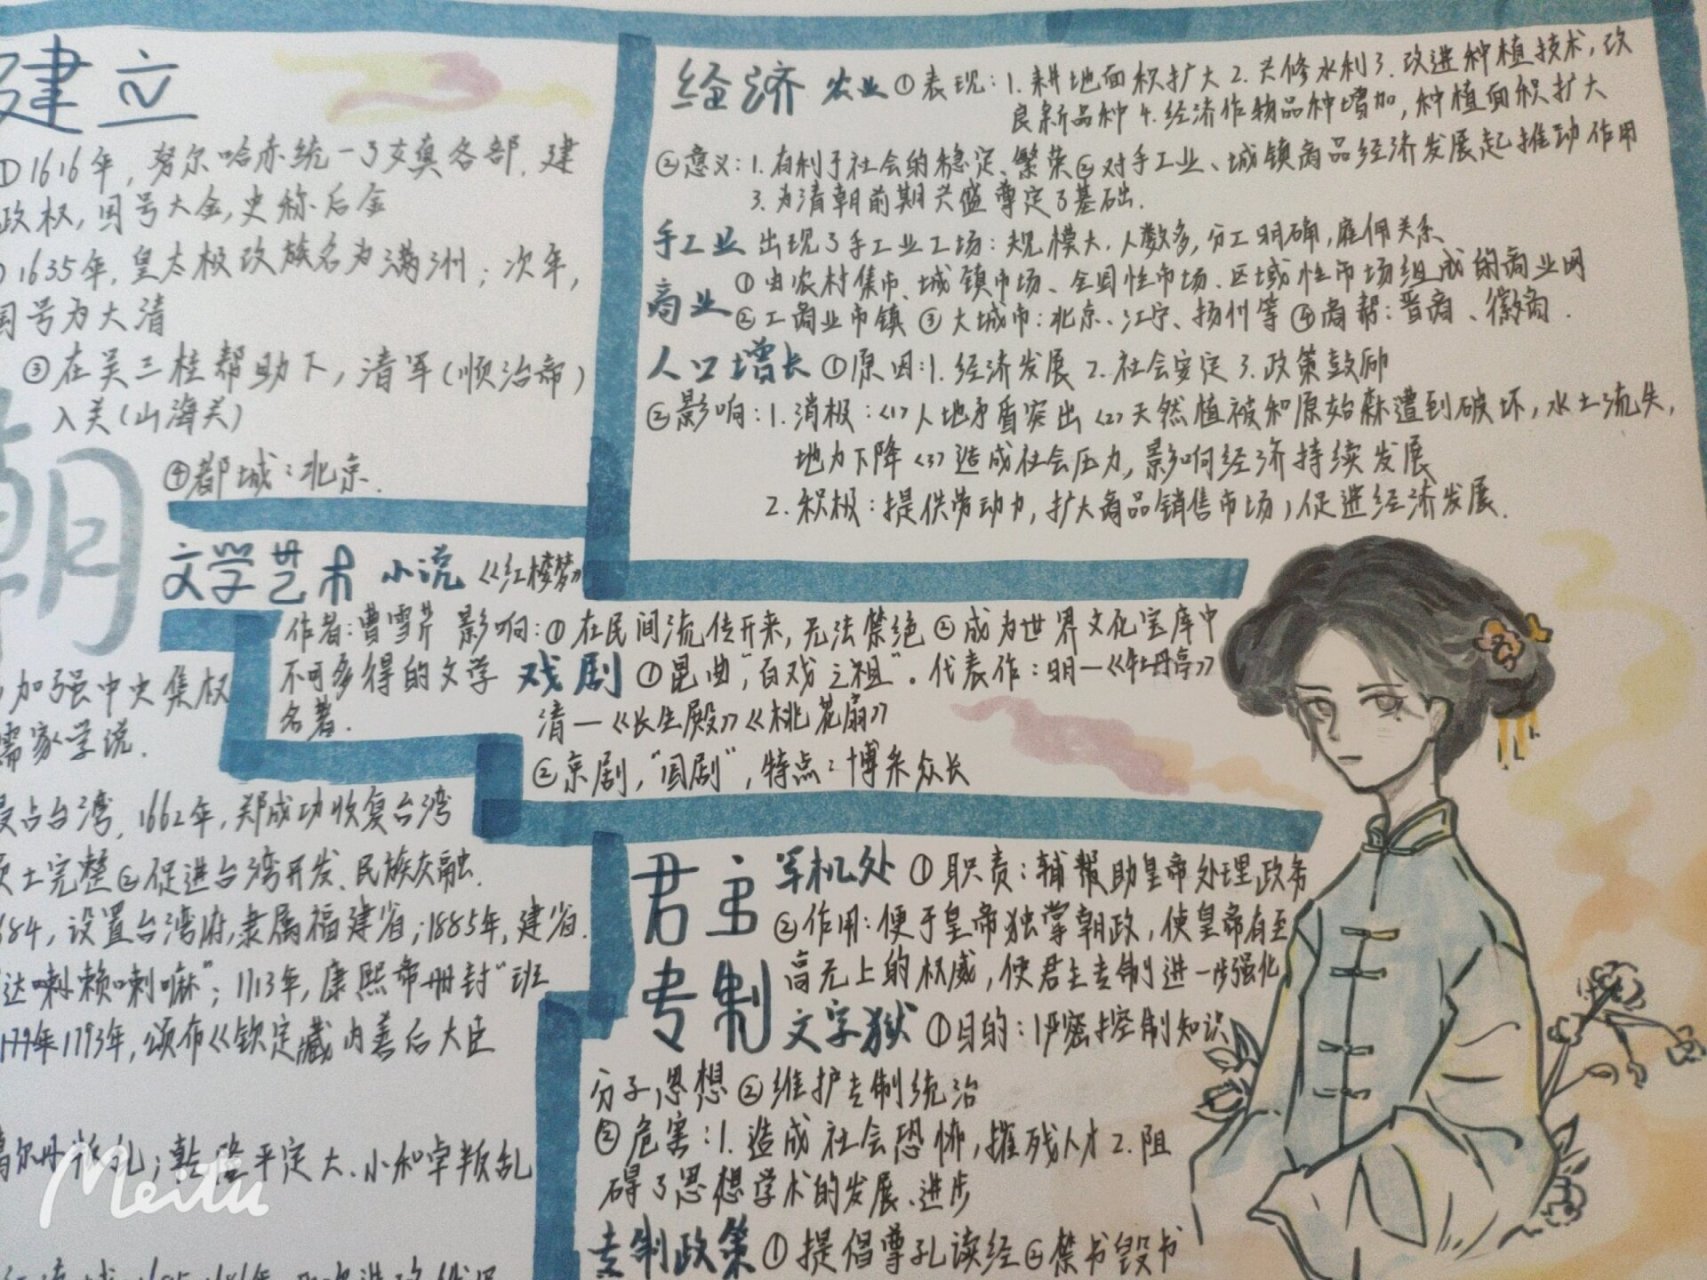 建立
①1616年,努尔哈赤统一了女真各部,建
政权,国号大金,史称后金
1635年,皇太极改族名为满洲;次年,
国号为大清
③在吴三桂帮助下,清军(顺治帝)
入关(山海关)
④都城:北京.
朝
加强中央集权
儒家学说.
占台湾,1662年,郑成功收复台湾
领土完整②促进台湾开发、民族交融.
684,设置台湾府,隶属福建省;1885年,建省.
达喇赖喇嘛";1713年,康熙帝册封"班
1793年,颁布《钦定藏内善后
大臣
噶尔丹叛乱;乾隆平定大、小和卓叛乱
经济 农业①表现:1.耕地面积扩大2.兴修水利3.改进种植技术,改
良新品种 4.经济作物品种增加,种植面积扩大
②意义:1.有利于社会的稳定、繁荣②对手工业、城镇商品经济发展起推动作用
3.为清朝前期兴盛奠定了基础.
手工业 出现了手工业工场:规模大,人数多,分工明确,雇佣关系
商业 ①由农村集市、城镇市场、全国性市场、区域性市场组成的商业网
②工商业市镇③大城市:北京、江宁、扬州等④商帮:晋商、徽商.
人口增长①原因:1.经济发展 2.社会安定 3.政策鼓励
②影响:1.消极:<1>人地矛盾突出<2>天然植被和原始森遭到破坏,水土流失,
地力下降<3>造成社会压力,影响经济持续发展
2.积极:提供劳动力,扩大商品销售市场,促进经济发展.
文学艺术 小说《红楼梦》
作者:曹雪芹 影响:①在民间流传开来,无法禁绝②成为世界文化宝库中
不可多得的文学
名著.
戏剧①昆曲"百戏之祖"。代表作:明一《牡丹亭》
清一《长生殿》《桃花扇》
②京剧,"国剧",特点:博采众长
君主
专制
军机处①职责:辅帮助皇帝处理政务
②作用:便于皇帝独掌朝政,使皇帝有至
高无上的权威,使君主专制进一步强化
文字狱①目的:严密控制知识
分子思想②维护专制统治
②危害:1.造成社会恐怖,摧残人才2.阻
碍了思想学术的发展、进步
专制政策①提倡尊孔读经②禁书毁书
Meitu